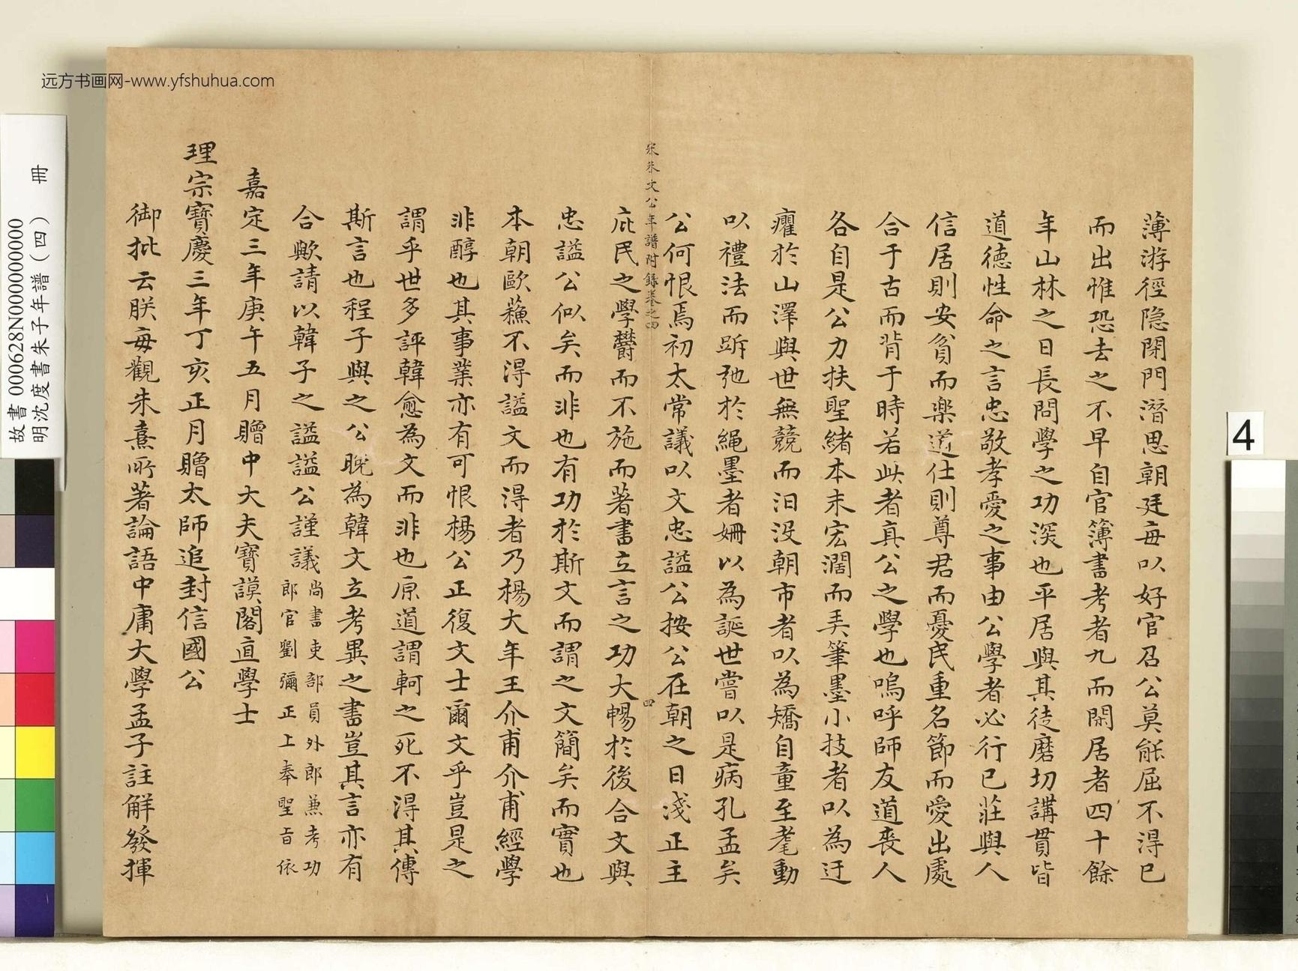 薄游徑隐閉門潛思朝廷每以好官召公莫能屈不得已
而出惟恐去之不早自官簿書考者九而閑居者四十餘
年山林之日長問學之功深也平居與其徒磨切講貫皆
道德性命之言忠敬孝愛之事由公學者必行已莊與人
信居則安貧而樂道仕則尊君而憂民重名節而愛出處
合于古而背于時若此者真公之學也嗚呼師友道喪人
各自是公力扶聖緒本末宏濶而弄筆墨小技者以為迂
癯於山澤與世無競而汩没朝市者以為矯自童至耄動
以禮法而跅弛於繩墨者姍以為誕世嘗以是病孔孟矣
公何恨焉初太常議以文忠謚公按公在朝之日淺正主
宋朱文公年譜附錄卷之四 四
庇民之學欝而不施而著書立言之功大暢於後合文與
忠謚公似矣而非也有功於斯文而謂之文簡矣而實也
本朝歐蘓不得謚文而得者乃楊大年王介甫介甫經學
非醇也其事業亦有可恨楊公正復文士爾文乎豈是之
謂乎世多評韓愈為文而非也原道謂軻之死不得其傳
斯言也程子與之公晚為韓文立考異之書豈其言亦有
合歟請以韓子之謚謚公謹議尚書吏部員外郎兼考功
郎官劉彌正上奉聖旨依
嘉定三年庚午五月贈中大夫寶謨閣直學士
理宗寶慶三年丁亥正月贈太師追封信國公
御批云朕每觀朱熹所著論語中庸大學孟子註解發揮
远方书画网-www.yfshuhua.com
故書 000628N000000000
明沈度書朱子年譜(四) 冊
4